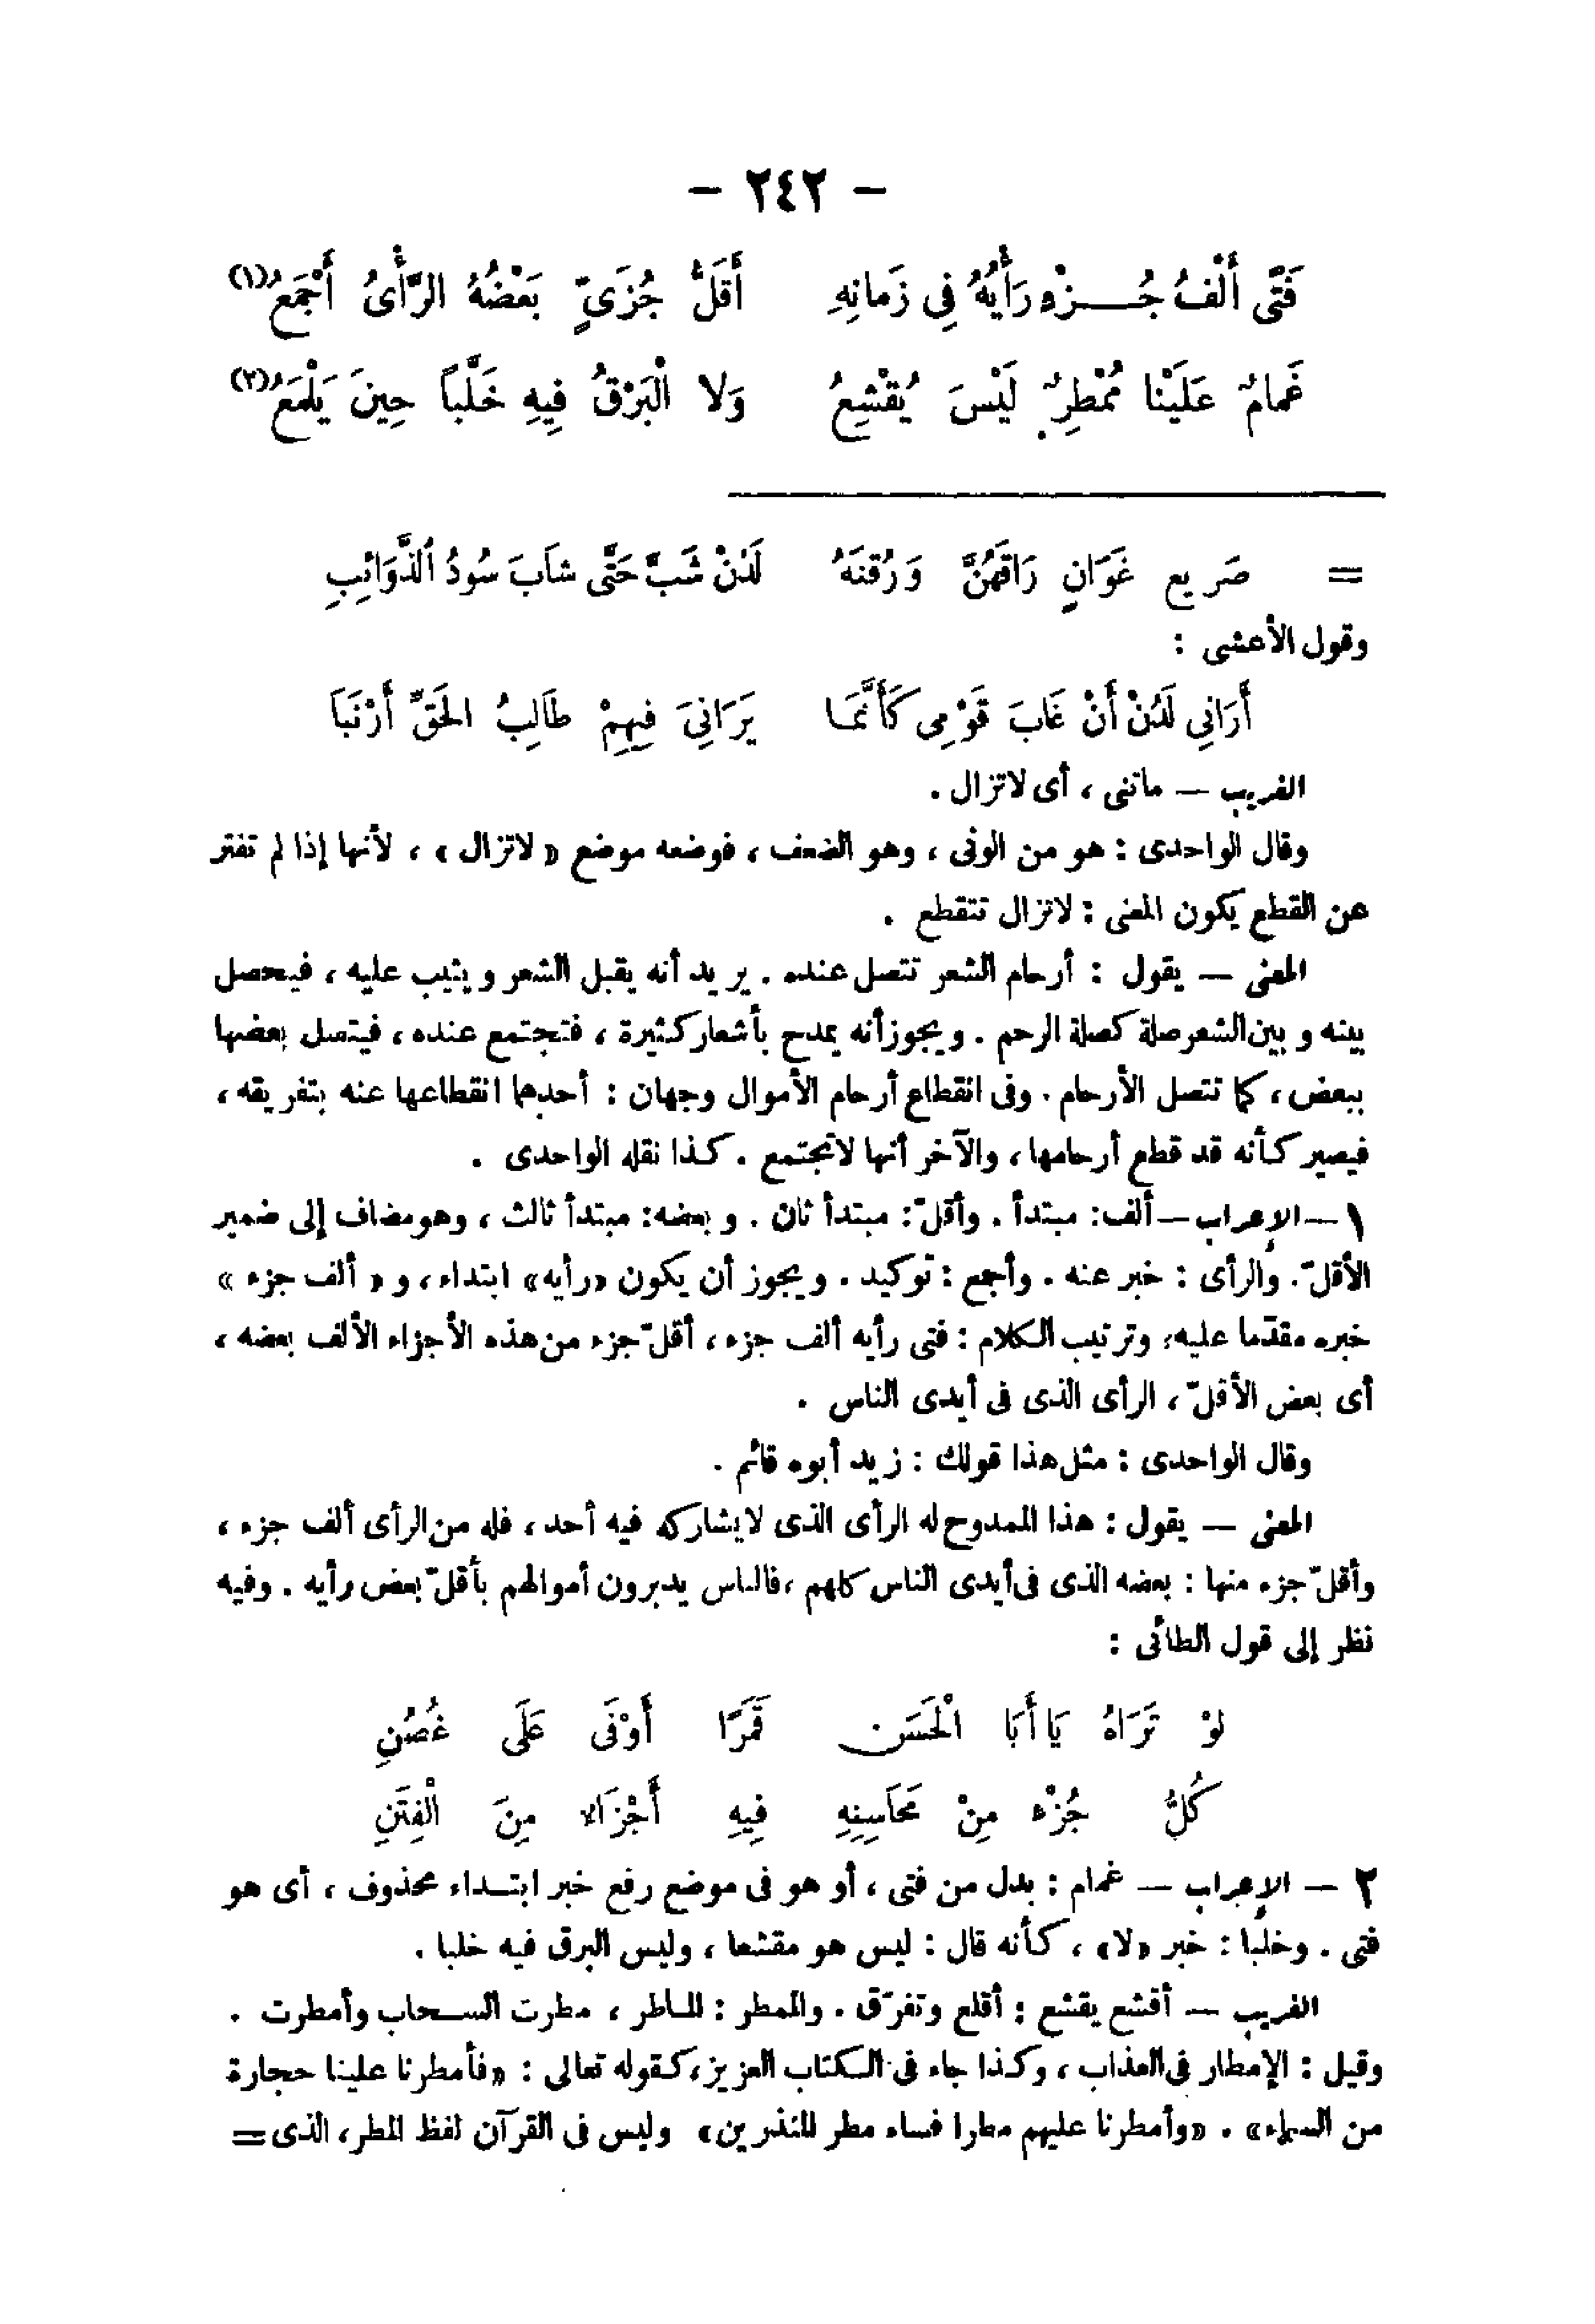 – ٢٤٢ –
فَتًى أَلْفُ جُـــزْءٍ رَأْيُهُ فِي زَمانِهِ أَقَلُّ جُزَىءٍ بَعْضُهُ الرَّأْىُ أَجْمَعُ(١)
غَمامٌ عَلَيْنا مُمْطِرٌ لَيْسَ يُقْشِعُ وَلا الْبَرْقُ فِيهِ خَلَّباً حِينَ يَلْمَعُ(٢)
= صَرِيع غَوَانٍ رَاقَهُنَّ وَرُقنَهُ لَدُنْ شَبَّ حَتَّى شابَ سُودُ الذَّوَائِبِ
وقول الأعشى :
أَرَانِي لَدُنْ أَنْ غَابَ قَوْمِى كَأَنَّمَا يَرَانِيَ فِيهِمْ طَالِبُ الحَقِّ أَرْنَبَا
الغريب — ماتنى ، أى لاتزال .
وقال الواحدى : هو من الونى ، وهو الضعف ، فوضعه موضع « لاتزال » ، لأنها إذا لم تفتر
عن القطع يكون المعنى : لاتزال تتقطع .
المعنى — يقول : أرحام الشعر تتصل عنده . يريد أنه يقبل الشعر ويثيب عليه ، فيحصل
بينه وبين الشعر صلة كصلة الرحم . ويجوز أنه يمدح بأشعار كثيرة ، فتجتمع عنده ، فيتصل بعضها
ببعض ، كما تتصل الأرحام . وفى انقطاع أرحام الأموال وجهان : أحدهما انقطاعها عنه بتفريقه ،
فيصير كأنه قد قطع أرحامها ، والآخر أنها لاتجتمع . كذا نقله الواحدى .
١ — الإعراب — ألف: مبتدأ . وأقلّ: مبتدأ ثان . وبعضه: مبتدأ ثالث ، وهو مضاف إلى ضمير
الأقلّ . والرأى : خبر عنه . وأجمع : توكيد . ويجوز أن يكون «رأيه» ابتداء ، و « ألف جزء »
خبره مقدّما عليه ، وترتيب الكلام : فتى رأيه ألف جزء ، أقلّ جزء من هذه الأجزاء الألف بعضه ،
أى بعض الأقلّ ، الرأى الذى فى أيدى الناس .
وقال الواحدى : مثل هذا قولك : زيد أبوه قائم .
المعنى — يقول : هذا الممدوح له الرأى الذى لايشاركه فيه أحد ، فله من الرأى ألف جزء ،
وأقلّ جزء منها : بعضه الذى فى أيدى الناس كلهم ، فالناس يدبرون أموالهم بأقلّ بعض رأيه . وفيه
نظر إلى قول الطائى :
لَوْ تَرَاهُ يَا أَبَا الْحَسَنِ قَمَرًا أَوْفَى عَلَى غُصُنِ
كُلُّ جُزْءٍ مِنْ مَحَاسِنِهِ فِيهِ أَجْزَاءٌ مِنَ الْفِتَنِ
٢ — الإعراب — غمام : بدل من فتى ، أو هو فى موضع رفع خبر ابتـداء محذوف ، أى هو
فتى . وخلبا : خبر «لا» ، كأنه قال : ليس هو مقشعا ، وليس البرق فيه خلبا .
الغريب — أقشع يقشع : أقلع وتفرّق . والممطر : الماطر ، مطرت السـحاب وأمطرت .
وقيل : الإمطار فى العذاب ، وكذا جاء فى الكتاب العزيز ، كقوله تعالى : «فأمطرنا علينا حجارة
من السماء» . «وأمطرنا عليهم مطرا فساء مطر المنذرين» وليس فى القرآن لفظ المطر ، الذى =